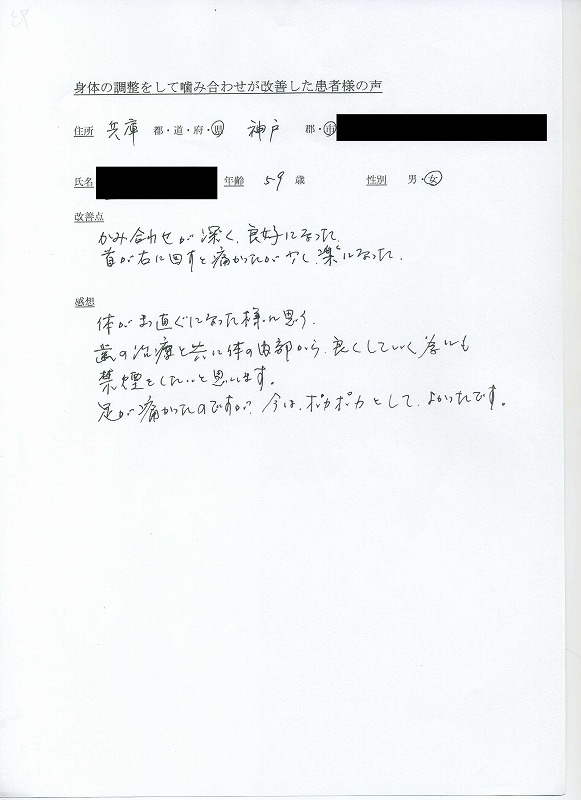 身体の調整をして噛み合わせが改善した患者様の声
住所 兵庫 都・道・府・県 神戸 郡・市
氏名 年齢 59 歳 性別 男・女
改善点
かみ合わせが深く、良好になった。
首が右に回すと痛かったが少し楽になった。
感想
体がまっ直ぐになった様に思う。
歯の治療と共に体の内部から、良くしていく為にも
禁煙をしたいと思います。
足が痛かったのですが、今は、ポカポカとして、よかったです。